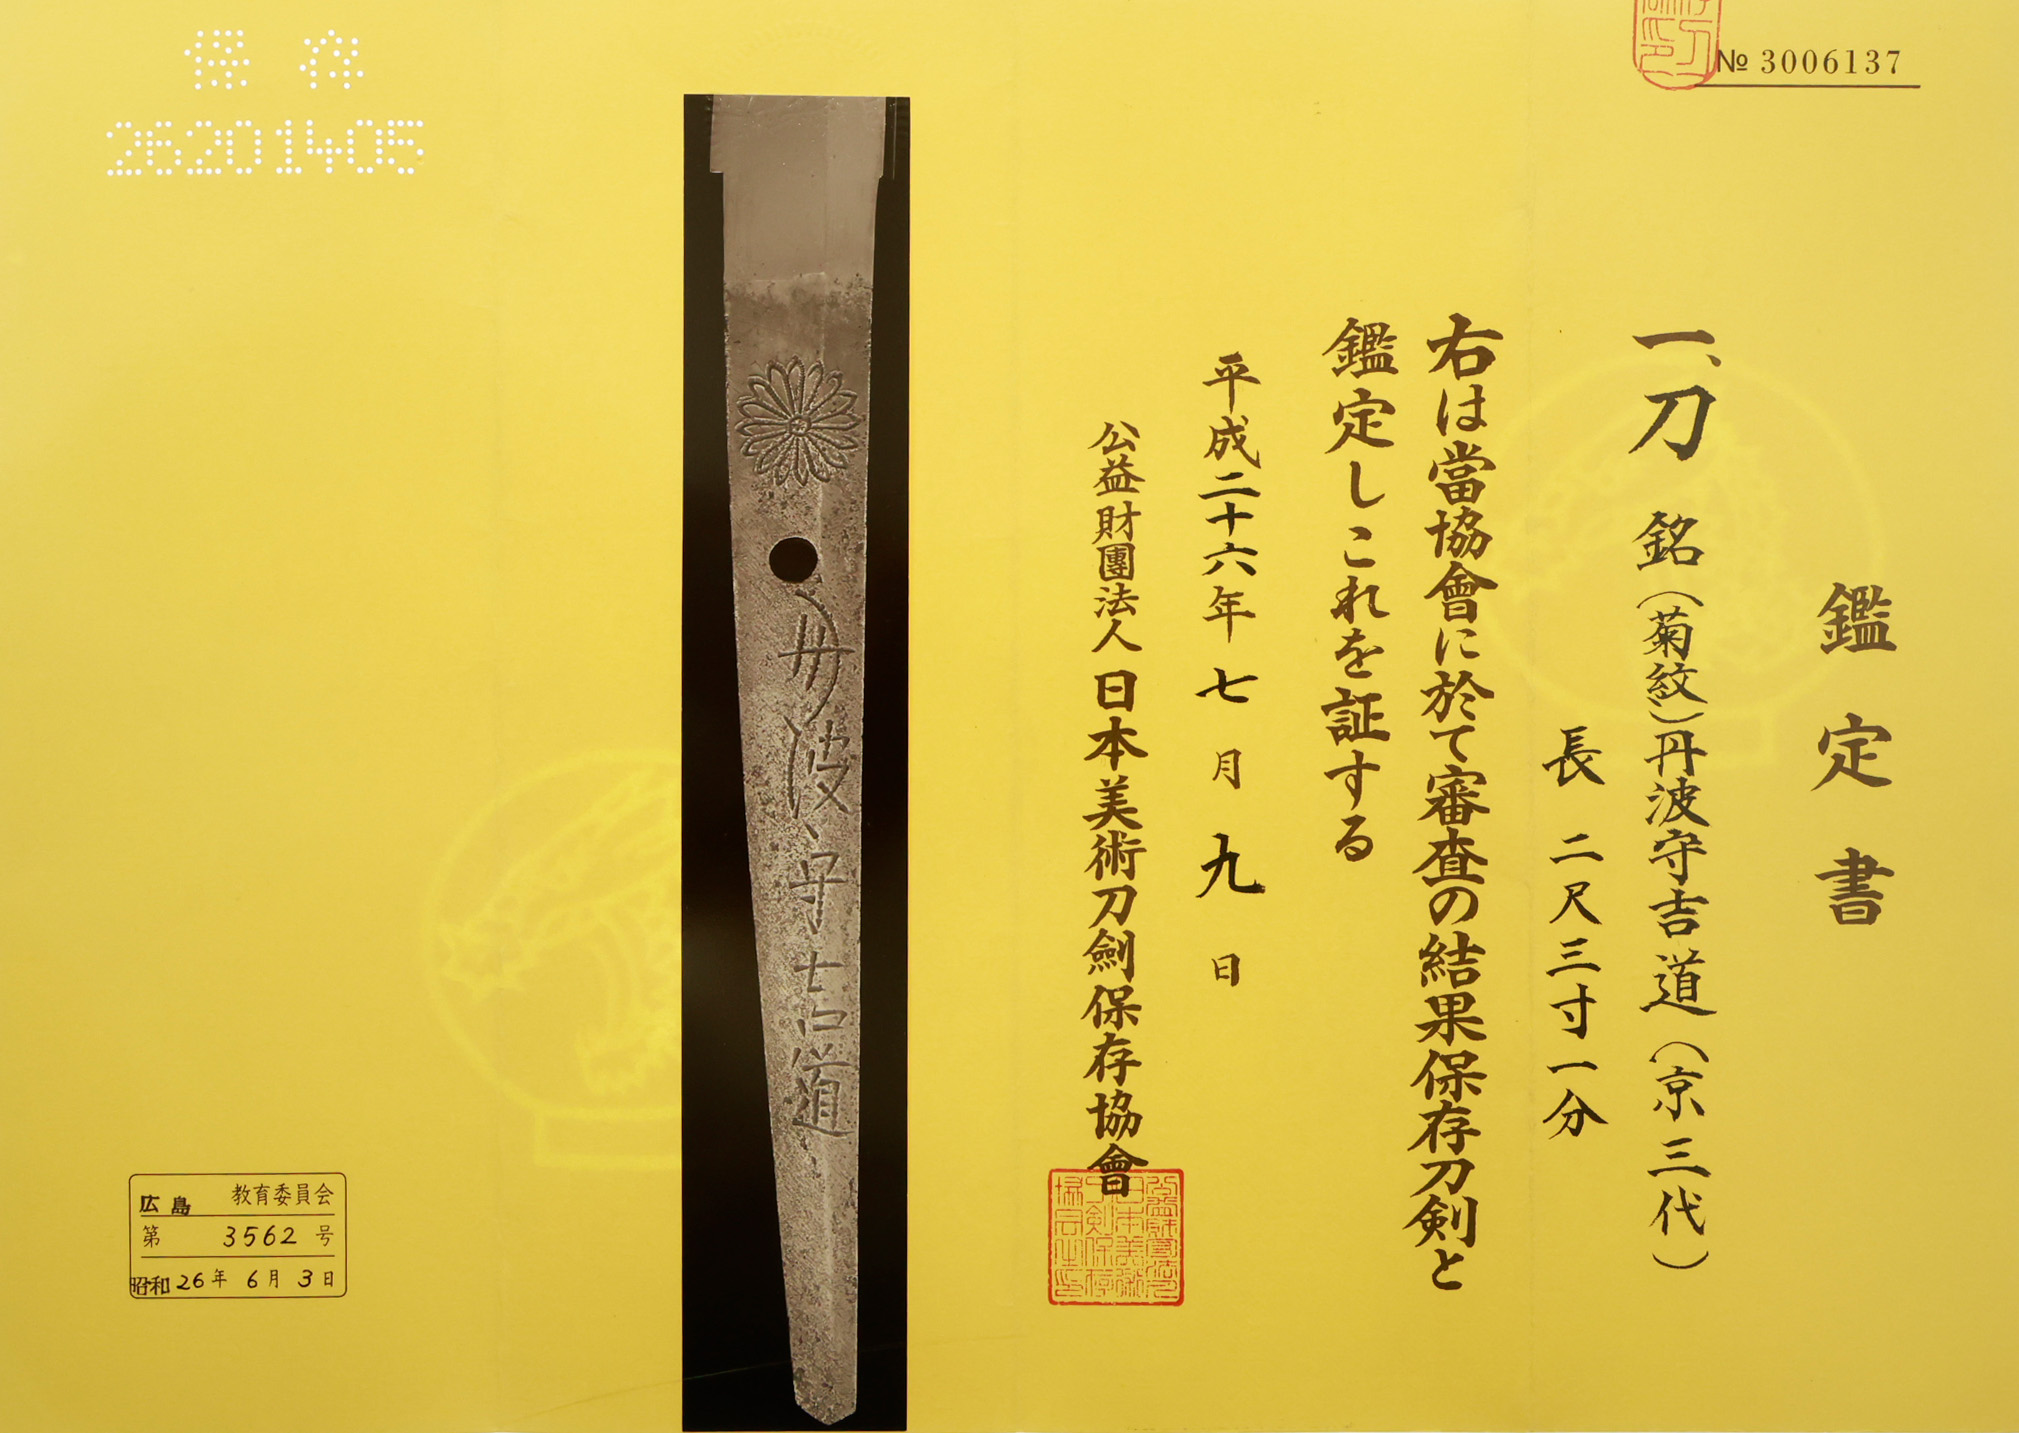 鑑定書
一、刀 銘(菊紋)丹波守吉道(京三代)
長 二尺三寸一分
右は當協會に於て審査の結果保存刀剣と
鑑定しこれを証する
平成二十六年七月九日
公益財團法人日本美術刀劍保存協會
№ 3006137
丹波守吉道
保存
26201405
広島 教育委員会
第 3562 号
昭和26年6月3日